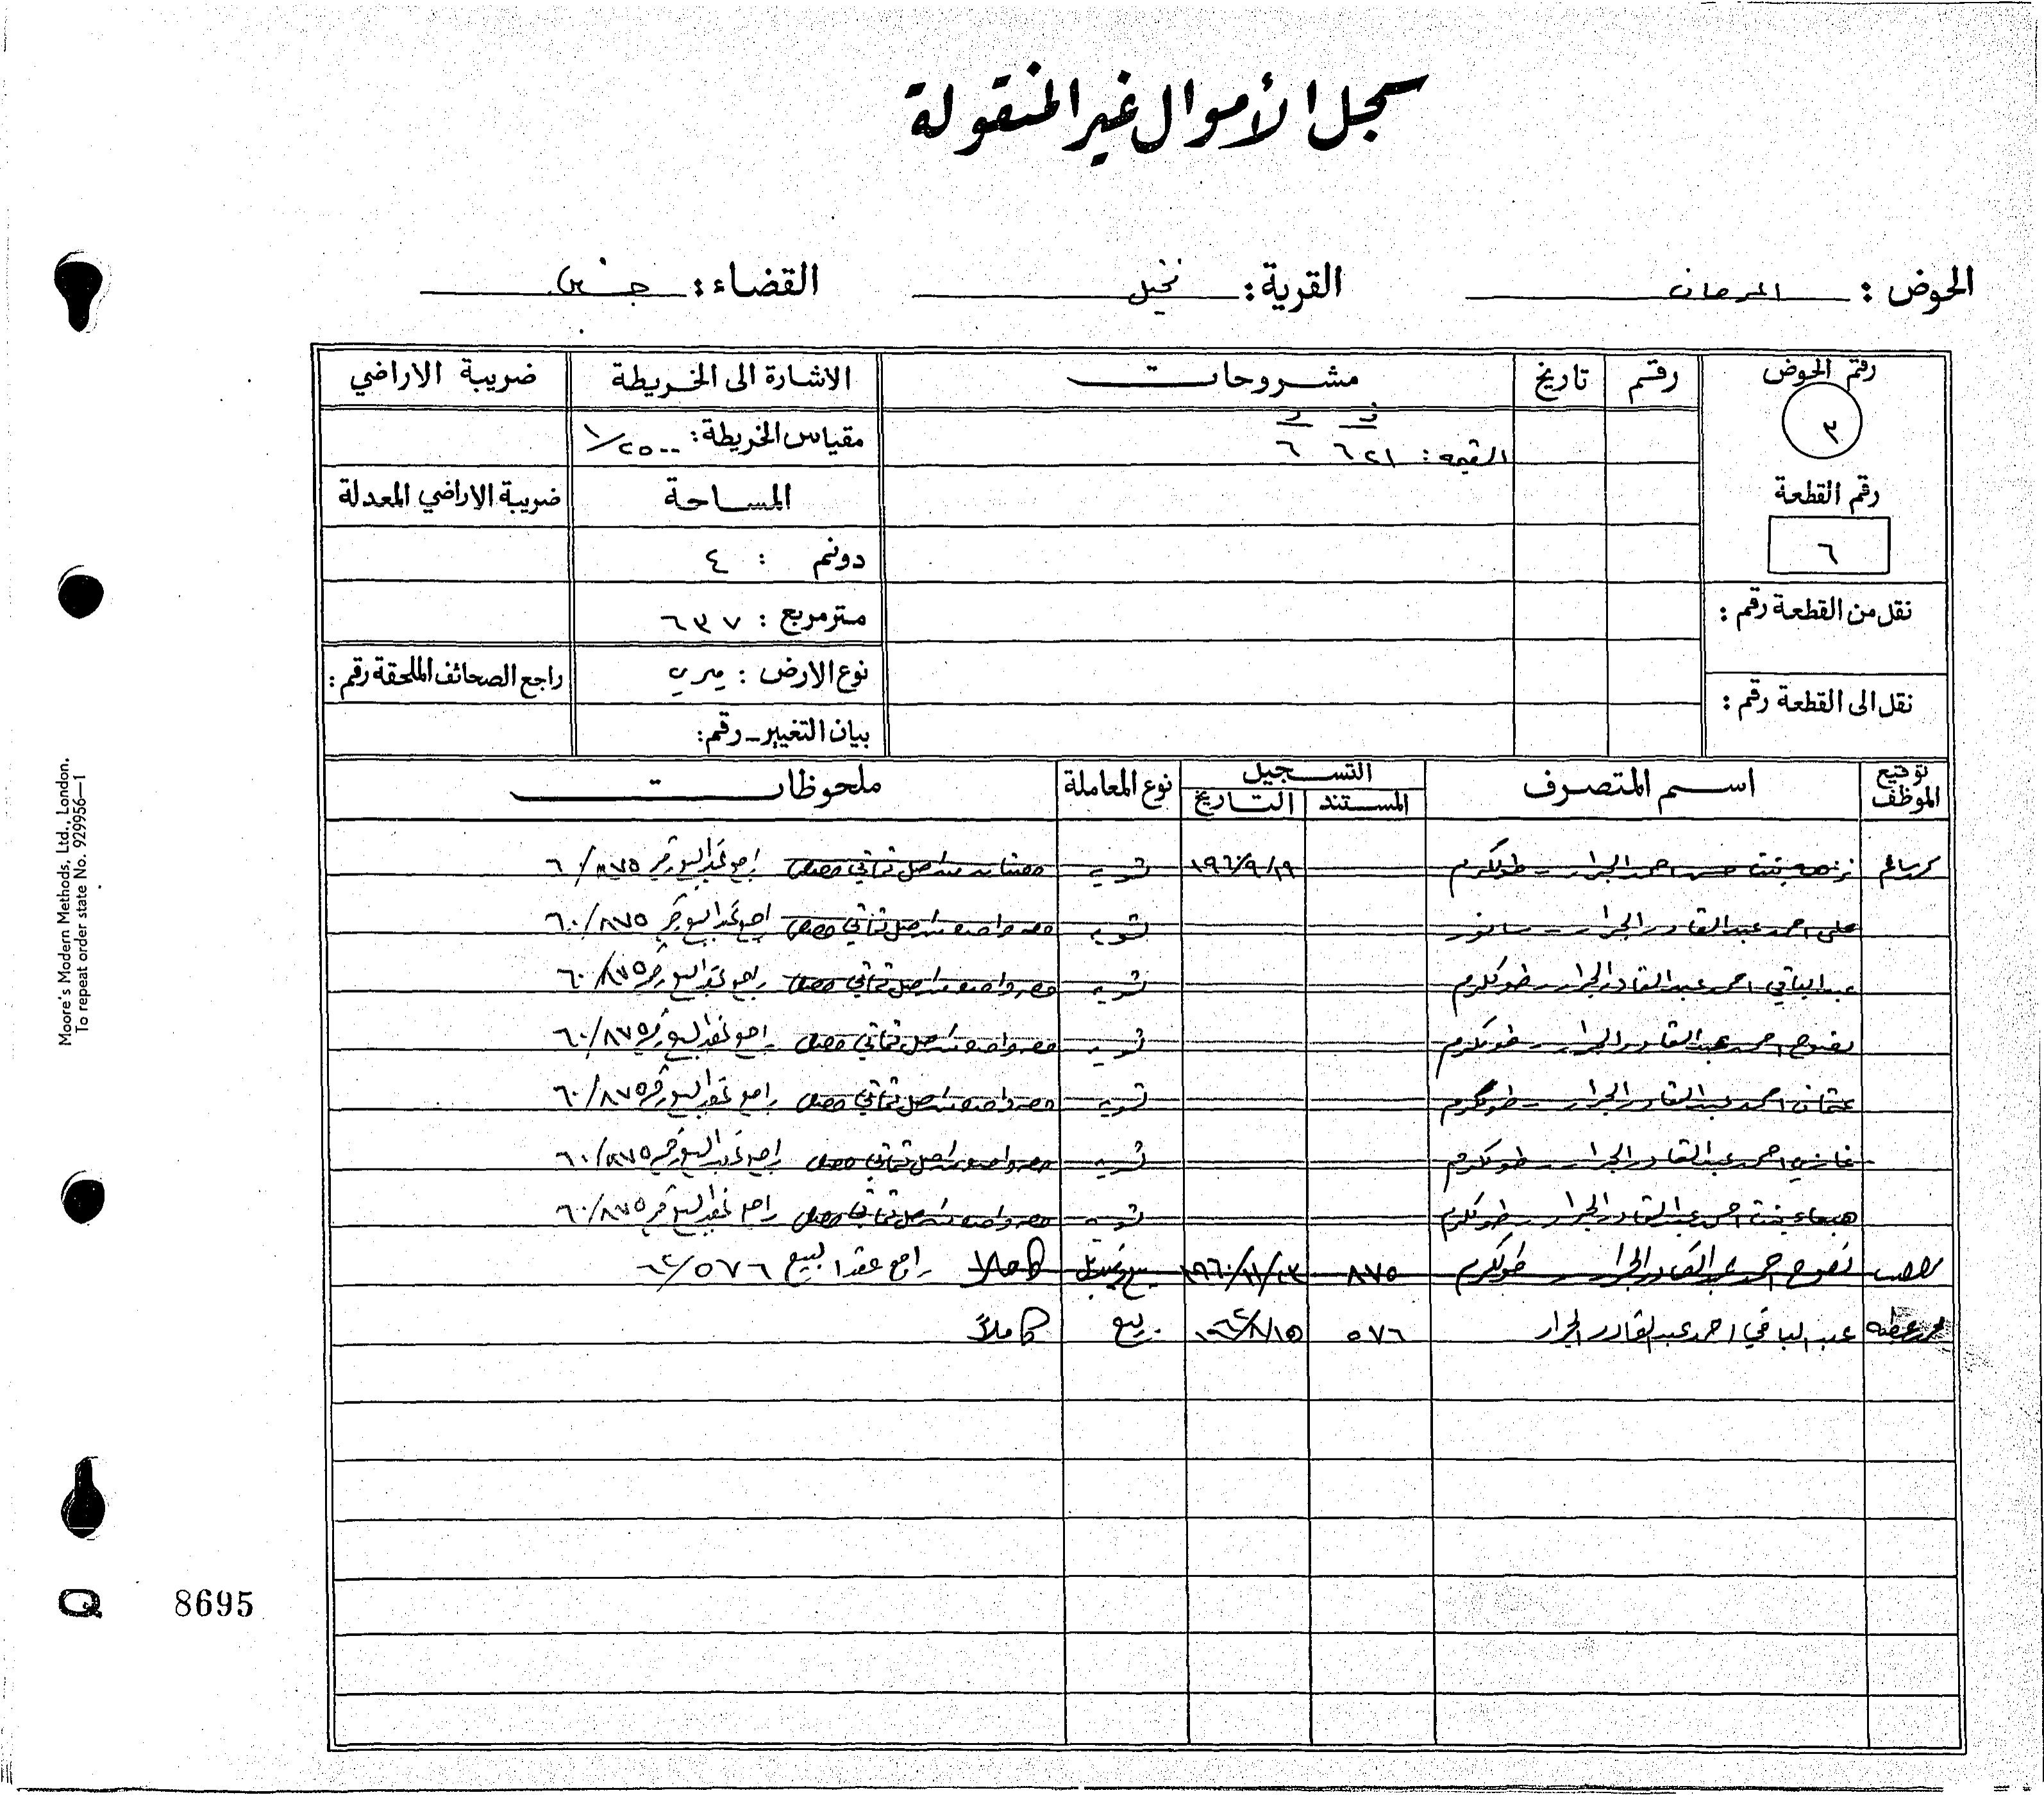 سجل الأموال غير المنقولة
الحوض : المرجان القرية : نخيل القضاء : جنين
رقم الحوض رقم تاريخ مشروحات الاشارة الى الخريطة ضريبة الاراضي
٣ القيمة : ٦٢١ ف ٦ د مقياس الخريطة : ١/٢٥٠٠
رقم القطعة المساحة ضريبة الاراضي المعدلة
٦ دونم : ٤
نقل من القطعة رقم : متر مربع : ٦٣٧
نوع الارض : ميري راجع الصحائف الملحقة رقم :
نقل الى القطعة رقم : بيان التغيير - رقم :
توقيع الموظف اسم المتصرف التسجيل نوع المعاملة ملحوظات
المستند التاريخ
بنت حسن احمد الجرار - طولكرم تسوية حصتان من اصل ثماني حصص راجع عقد البيع رقم ٦٠/٨٧٥
علي احمد عبد القادر الجرار - سانور تسوية حصه واحده من اصل ثماني حصص راجع عقد البيع رقم ٦٠/٨٧٥
عبد الباقي احمد عبد القادر الجرار - طولكرم تسوية حصه واحده من اصل ثماني حصص راجع عقد البيع رقم ٦٠/٨٧٥
نصوح احمد عبد القادر الجرار - طولكرم تسوية حصه واحده من اصل ثماني حصص راجع عقد البيع رقم ٦٠/٨٧٥
عثمان احمد عبد القادر الجرار - طولكرم تسوية حصه واحده من اصل ثماني حصص راجع عقد البيع رقم ٦٠/٨٧٥
غازي احمد عبد القادر الجرار - طولكرم تسوية حصه واحده من اصل ثماني حصص راجع عقد البيع رقم ٦٠/٨٧٥
هيجاء بنت احمد عبد القادر الجرار - طولكرم تسوية حصه واحده من اصل ثماني حصص راجع عقد البيع رقم ٦٠/٨٧٥
نصوح احمد عبد القادر الجرار - طولكرم ٨٧٥ بيع كاملا راجع عقد البيع ٦٢/٥٧٦
عبد الباقي احمد عبد القادر الجرار ٥٧٦ ١٩٦٢/٨/١٥ بيع كاملاً
Moore's Modern Methods, Ltd., London.
To repeat order state No. 929956—1
Q 8695